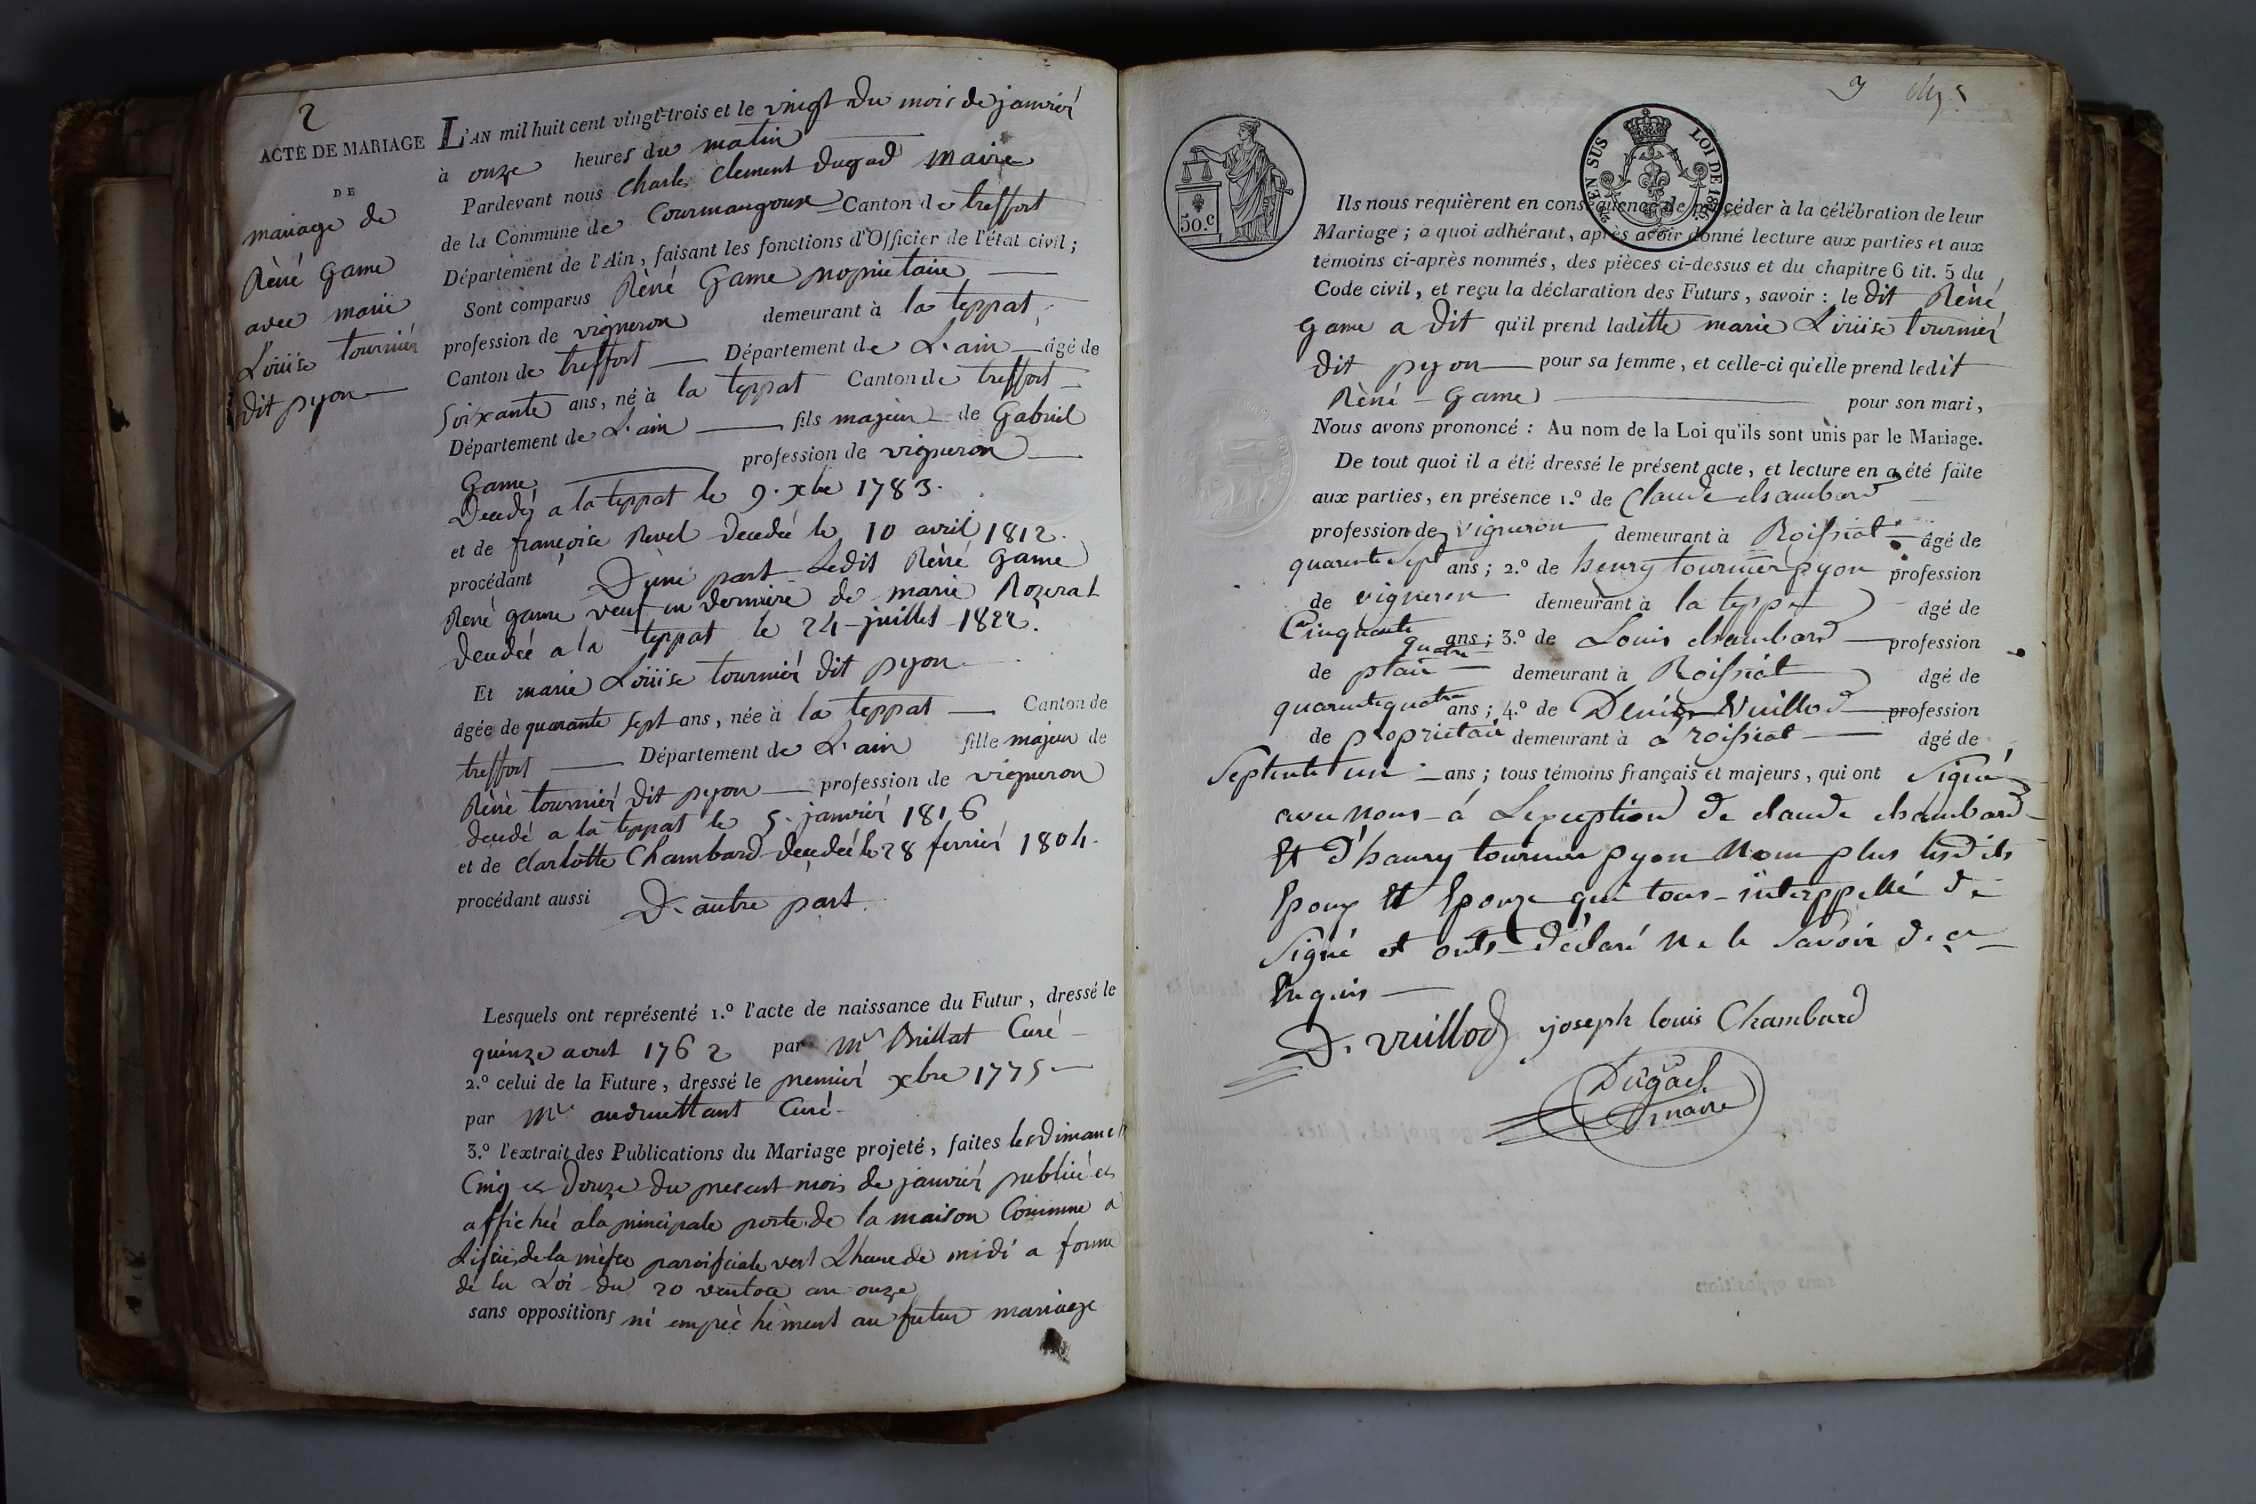 2
ACTE DE MARIAGE
DE
mariage de
Rèné Game
avec marie
Loüise tournier
dit pyon
L'AN mil huit cent vingt-trois et le vingt du mois de janvier
à onze heures du matin
Pardevant nous Charles Clement Dugad maire
de la Commune de Courmangoux Canton de treffort
Département de l'Ain, faisant les fonctions d'Officier de l'état civil ;
Sont comparus Rèné Game proprietaire
profession de vigneron demeurant à la teppat
Canton de treffort Département de L'ain âgé de
soixante ans, né à la teppat Canton de treffort
Département de L'ain fils majeur de Gabriel
Game profession de vigneron
Decedé a la teppat le 9. xbre 1783.
et de françoise Revel decedée le 10 avril 1812.
procédant D'une part Ledit Rèné Game
René game veuf en derniere de marie Rozerat
decedée a la teppat le 24 juillet 1822.
Et marie Loüise tournier dit pyon
âgée de quarante sept ans, née à la teppat Canton de
treffort Département de L'ain fille majeur de
Rèné tournier dit pyon profession de vigneron
decedé a la teppat le 5. janvier 1816
et de Charlotte Chambard decedée le 28 fevrier 1804.
procédant aussi D'autre part
Lesquels ont représenté 1.º l'acte de naissance du Futur, dressé le
quinze aout 1762 par Mr Brillat Curé
2.º celui de la Future, dressé le premier xbre 1775
par Mr Curé
3.º l'extrait des Publications du Mariage projeté, faites les Dimanch
Cinq et Douze du present mois de janvier publié et
affiché a la principale porte de la maison Commune a
de la messe paroissiale vers L'heure de midi a forme
de la Loi du 20 ventose an onze
sans oppositions ni empèchèment au futur mariage
3
50.c
EN SUS
LOI DE 18
Ils nous requièrent en conséquence de procéder à la célébration de leur
Mariage ; a quoi adhérant, après avoir donné lecture aux parties et aux
témoins ci-après nommés, des pièces ci-dessus et du chapitre 6 tit. 5 du
Code civil, et reçu la déclaration des Futurs, savoir : le dit Rèné
Game a dit qu'il prend laditte marie Loüise tournier
dit pyon pour sa femme, et celle-ci qu'elle prend ledit
Rèné Game pour son mari,
Nous avons prononcé : Au nom de la Loi qu'ils sont unis par le Mariage.
De tout quoi il a été dressé le présent acte, et lecture en a été faite
aux parties, en présence 1.º de Claude chambard
profession de vigneron demeurant à Roissiat âgé de
quarente sept ans ; 2.º de henry tournier pyon profession
de vigneron demeurant à la teppat âgé de
Cinquante quatre ans ; 3.º de Louis chambard profession
de demeurant à Roissiat âgé de
quarente quatre ans ; 4.º de Denis Vuillod profession
de proprietaire demeurant à a roissiat âgé de
Septente un ans ; tous témoins français et majeurs, qui ont signé
avec nous à Lexception de claude chambard
Et D'haury tournier pyon Nom plus lesdits
Epoux Et Epouze qui tous interppellé de
signé et onts déclaré Ne le savoir de ce
Enquis
D. Vuillod joseph louis Chambard
Dugad
maire